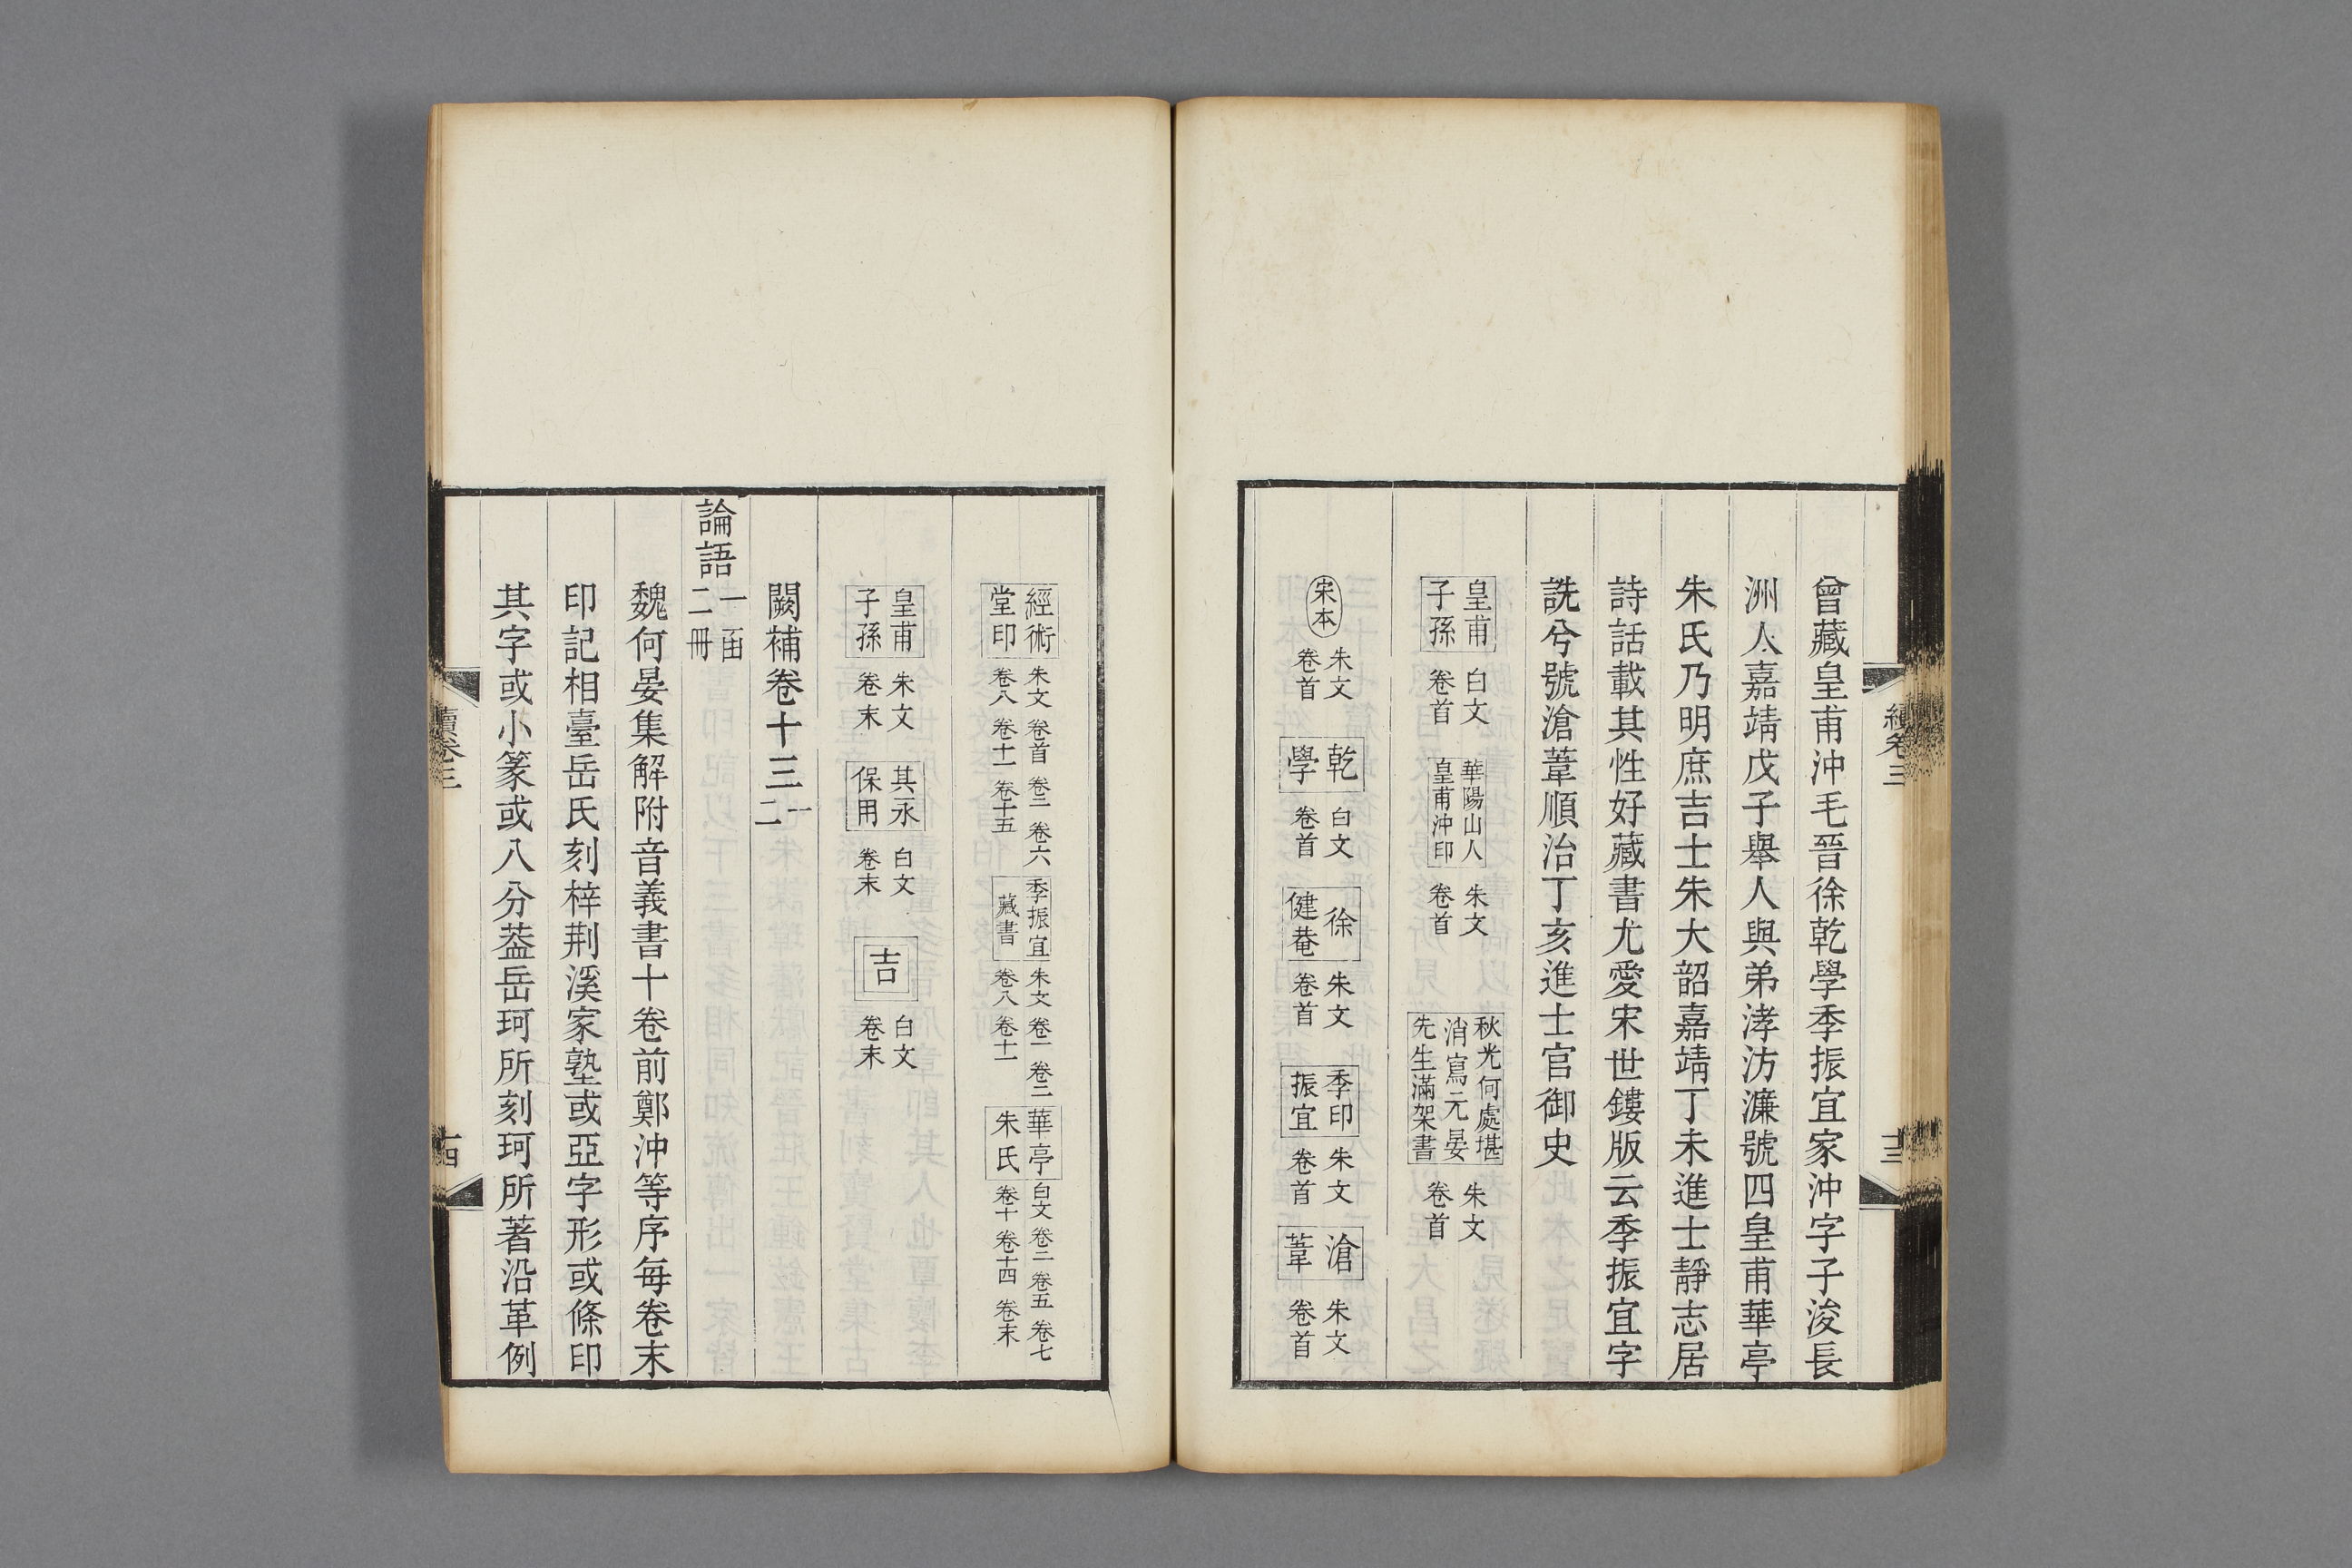 曾藏皇甫沖毛晉徐乾學季振宜家沖字子浚長
洲人嘉靖戊子舉人與弟涍汸濂號四皇甫華亭
朱氏乃明庶吉士朱大韶嘉靖丁未進士靜志居
詩話載其性好藏書尤愛宋世鏤版云季振宜字
詵兮號滄葦順治丁亥進士官御史
皇甫子孫 白文卷首 華陽山人皇甫沖印 朱文卷首 秋光何處堪消寫元晏先生滿架書 朱文卷首
宋本 朱文卷首 乾學 白文卷首 徐健菴 朱文卷首 季印振宜 朱文卷首 滄葦 朱文卷首
續卷三
十三
經術堂印 朱文卷首 卷三 卷六 卷八 卷十一 卷十五 季振宜藏書 朱文 卷一 卷二 卷八 卷十一 華亭朱氏 白文 卷二 卷五 卷七 卷十 卷十四 卷末
皇甫子孫 朱文卷末 其永保用 白文卷末 吉 白文卷末
闕補卷十三一二
論語一函二冊
魏何晏集解附音義書十卷前鄭沖等序每卷末
印記相臺岳氏刻梓荆溪家塾或亞字形或條印
其字或小篆或八分葢岳珂所刻珂所著沿革例
續卷三
十四